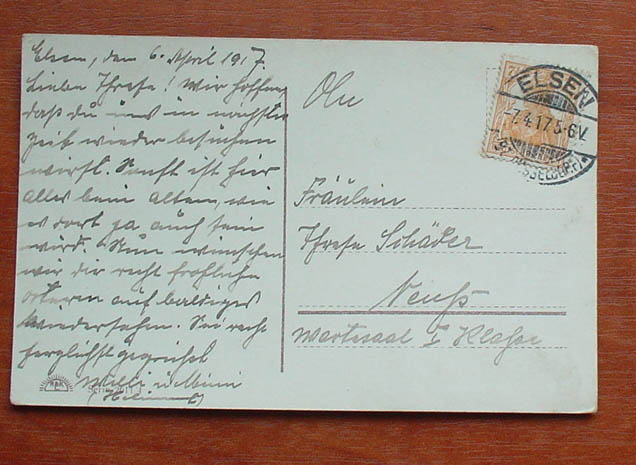 Elsen, den 6. April 1917.
Liebe Threse! Wir hoffen
daß du uns in nächster
Zeit wieder besuchen
wirst. Sonst ist hier
alles beim alten, wie
es dort ja auch sein
wird. Nun wünschen
wir dir recht fröhliche
Ostern auf baldiges
Wiedersehen. Sei recht
herzlichst gegrüsst
Willi u Mimi
An
Fräulein
Threse Schäder
Neuß
Wartesaal I Klasse
ELSEN
-7.4.17.5-6V.